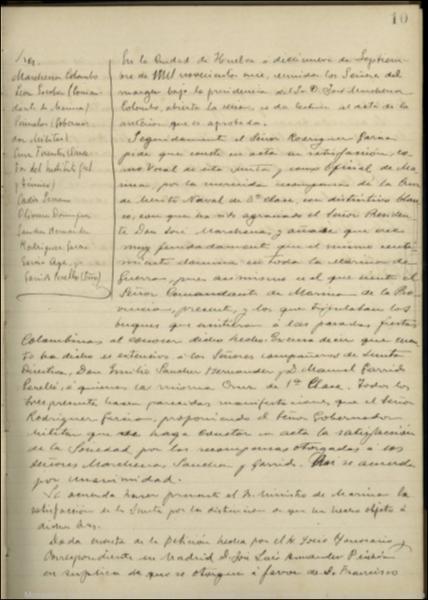 10
Sres.
Marchena Colombo
(Coman-
dante de Marina)
(Gober-
dor Militar)
Cádiz Serrano
Oliveira Domínguez
Sánchez Hernández
Rodríguez García
Garrido Perelló (Srio)
En la Ciudad de Huelva a diecinueve de Septiem-
bre de mil novecientos once, reunidos los Señores del
margen bajo la presidencia del Sr. D. José Marchena
Colombo, abierta la sesión, se da lectura al acta de la
anterior que es aprobada.
Seguidamente el Señor Rodríguez García
pide que conste en acta su satisfacción, co-
mo Vocal de esta Junta y como oficial de Ma-
rina, por la merecida recompensa de la Cruz
de Mérito Naval de 2ª clase, con distintivo blan-
co, con que ha sido agraciado el Señor Presiden-
te Don José Marchena, y añade que cree
muy fundadamente que el mismo senti-
miento domina en toda la Marina de
Guerra, pues asimismo es el que siente el
Señor Comandante de Marina de la Pro-
vincia, presente, y los que tripulaban los
buques que asistieron á las pasadas fiestas
Colombinas al conocer dicho hecho. Excusa decir que cuan-
to ha dicho es extensivo á los Señores compañeros de Junta
Directiva, Don Emilio Sánchez Hernández y D. Manuel Garrido
Perelló, á quienes la misma Cruz de 1ª Clase. Todos los
Sres presentes hacen parecidas manifestaciones que el Señor
Rodríguez García, proponiendo el Señor Gobernador
Militar que se haga constar en acta la satisfacción
de la Sociedad por las recompensas otorgadas á los
señores Marchena, Sánchez y Garrido. Así se acuerda
por unanimidad.
Se acuerda hacer presente al Sr. Ministro de Marina la
satisfacción de la Junta por las distinciones de que han hecho objeto á
dichos Sres.
Dada cuenta de la petición hecha por el Sr. Socio Honorario y
Correspondiente en Madrid D. José Luis Hernández Pinzón
en súplica de que se otorgue á favor de D. Francisco